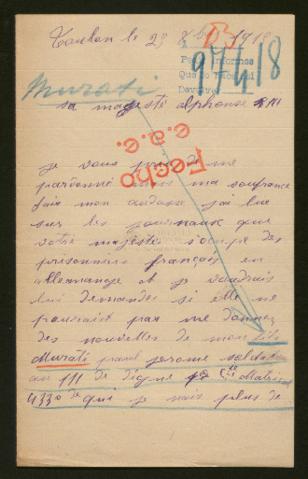 Toulon le 29 8bre 1918
B
Pedir Informes
Que se
Devuelve
97418
Murati
sa magesté alphonse XIII
Fecho
c.a.e.
je vous prie de me
pardonné dans ma soufrance
fair mon audace j'ai lue
sur les journaux que
votre majestés s'ocupe des
prisonnies français en
allemange et je voudrais
lui demander si elle ne
pourait pas me donnez
des nouvelles de mon fils
Murati paul jerome soldat
au 111 de digne Cie Matricul
4330 de qui je nais plus de